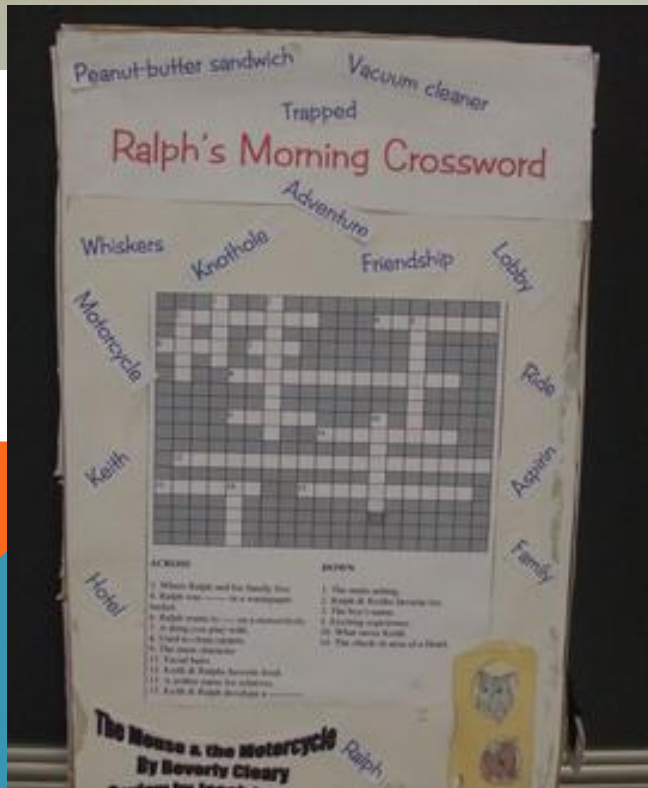 Peanut-butter sandwich
Vacuum cleaner
Trapped
Ralph's Morning Crossword
Adventure
Whiskers
Knothole
Friendship
Lobby
Motorcycle
Ride
Keith
Aspirin
Hotel
Family
ACROSS
3. Where Ralph and his family live
4. Ralph was in a wastepaper
basket
6. Ralph wants to on a motorcycle
8. Used to clean carpets
9. The main character
11. Facial hairs
12. Keith & Ralphs favorite food
13. A polite name for relatives
15. Keith & Ralph develop a
DOWN
1. The main setting
2. Ralph & Keiths favorite toy
3. The boy's name
5. Exciting experience
10. What saves Keith
14. The check-in area of a Hotel
The Mouse & the Motorcycle
By Beverly Cleary
Ralph